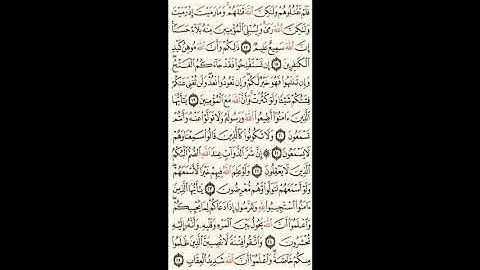 فَلَمْ تَقْتُلُوهُمْ وَلَٰكِنَّ ٱللَّهَ قَتَلَهُمْ ۚ وَمَا رَمَيْتَ إِذْ رَمَيْتَ
وَلَٰكِنَّ ٱللَّهَ رَمَىٰ ۚ وَلِيُبْلِىَ ٱلْمُؤْمِنِينَ مِنْهُ بَلَآءً حَسَنًا ۚ
إِنَّ ٱللَّهَ سَمِيعٌ عَلِيمٌ ١٧ ذَٰلِكُمْ وَأَنَّ ٱللَّهَ مُوهِنُ كَيْدِ
ٱلْكَٰفِرِينَ ١٨ إِن تَسْتَفْتِحُوا۟ فَقَدْ جَآءَكُمُ ٱلْفَتْحُ ۖ
وَإِن تَنتَهُوا۟ فَهُوَ خَيْرٌ لَّكُمْ ۖ وَإِن تَعُودُوا۟ نَعُدْ وَلَن تُغْنِىَ عَنكُمْ
فِئَتُكُمْ شَيْـًٔا وَلَوْ كَثُرَتْ وَأَنَّ ٱللَّهَ مَعَ ٱلْمُؤْمِنِينَ ١٩ يَٰٓأَيُّهَا
ٱلَّذِينَ ءَامَنُوٓا۟ أَطِيعُوا۟ ٱللَّهَ وَرَسُولَهُۥ وَلَا تَوَلَّوْا۟ عَنْهُ وَأَنتُمْ
تَسْمَعُونَ ٢٠ وَلَا تَكُونُوا۟ كَٱلَّذِينَ قَالُوا۟ سَمِعْنَا وَهُمْ
لَا يَسْمَعُونَ ٢١ ۞ إِنَّ شَرَّ ٱلدَّوَآبِّ عِندَ ٱللَّهِ ٱلصُّمُّ ٱلْبُكْمُ
ٱلَّذِينَ لَا يَعْقِلُونَ ٢٢ وَلَوْ عَلِمَ ٱللَّهُ فِيهِمْ خَيْرًا لَّأَسْمَعَهُمْ ۖ
وَلَوْ أَسْمَعَهُمْ لَتَوَلَّوا۟ وَّهُم مُّعْرِضُونَ ٢٣ يَٰٓأَيُّهَا ٱلَّذِينَ
ءَامَنُوا۟ ٱسْتَجِيبُوا۟ لِلَّهِ وَلِلرَّسُولِ إِذَا دَعَاكُمْ لِمَا يُحْيِيكُمْ ۖ
وَٱعْلَمُوٓا۟ أَنَّ ٱللَّهَ يَحُولُ بَيْنَ ٱلْمَرْءِ وَقَلْبِهِۦ وَأَنَّهُۥٓ إِلَيْهِ
تُحْشَرُونَ ٢٤ وَٱتَّقُوا۟ فِتْنَةً لَّا تُصِيبَنَّ ٱلَّذِينَ ظَلَمُوا۟
مِنكُمْ خَآصَّةً ۖ وَٱعْلَمُوٓا۟ أَنَّ ٱللَّهَ شَدِيدُ ٱلْعِقَابِ ٢٥